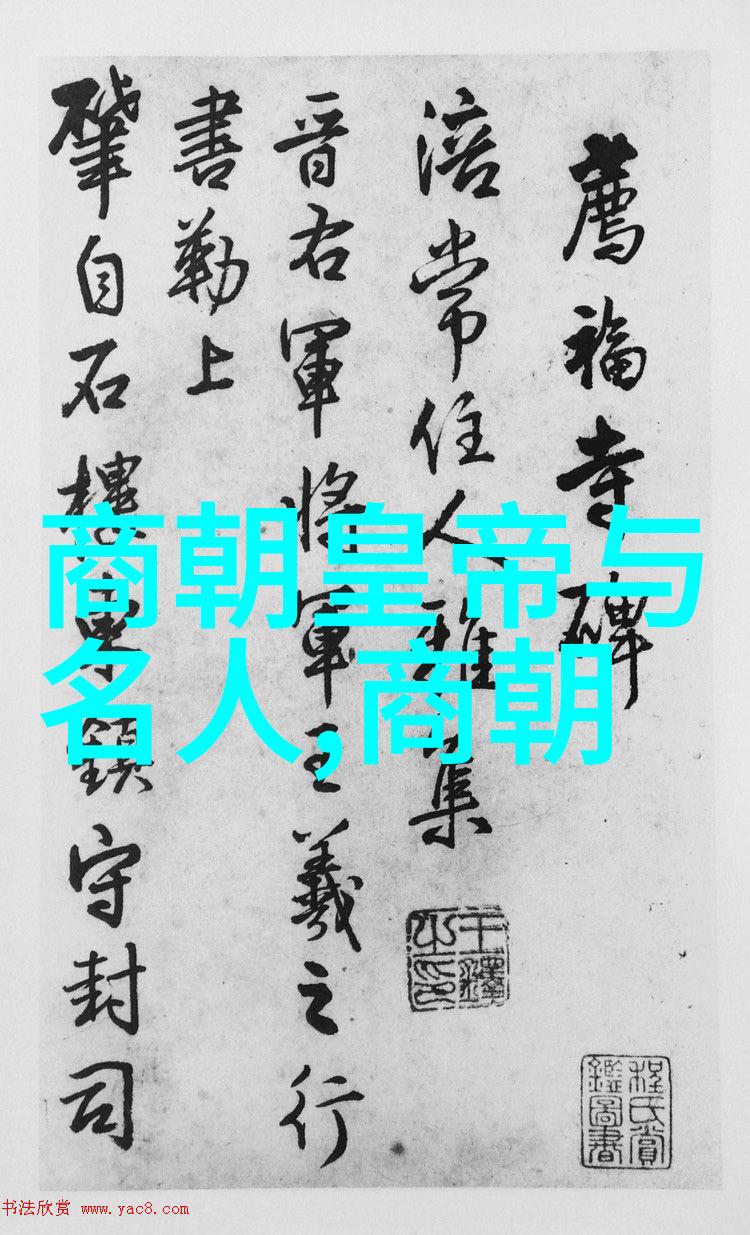 薦福寺碑
涪常住人雅集
晉右軍將軍王羲之行
書勒上
肇自石樓東鎮守封司
商朝皇帝与
名人,商朝
王鐸
之印
程氏賞
鑑圖書
书法欣赏 www.yac8.com